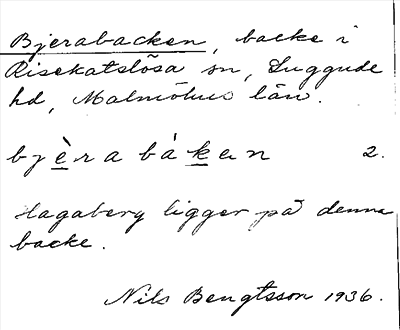 Bjerabacken, backe i
Risekatslösa sn, Luggude
hd, Malmöhus län.
bjèrabákan 2.
Hagaberg ligger på denna
backe.
Nils Bengtsson 1936.